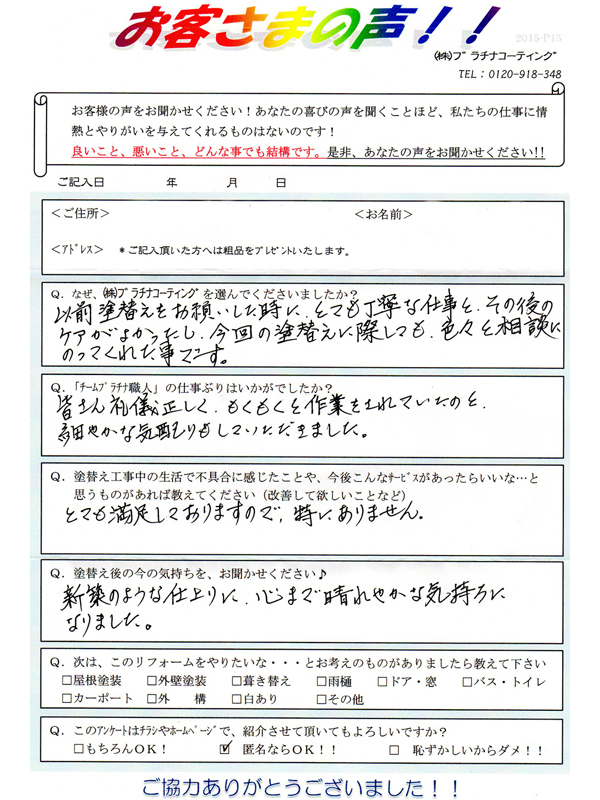 お客さまの声!!
2015-P15
㈱プラチナコーティング
TEL:0120-918-348
お客様の声をお聞かせください!あなたの喜びの声を聞くことほど、私たちの仕事に情
熱とやりがいを与えてくれるものはないのです!
良いこと、悪いこと、どんな事でも結構です。是非、あなたの声をお聞かせください!!
ご記入日 年 月 日
<ご住所> <お名前>
<アドレス> *ご記入頂いた方へは粗品をプレゼントいたします。
Q. なぜ、㈱プラチナコーティングを選んでくださいましたか?
以前塗替えをお願いした時に、とても丁寧な仕事と、その後の
ケアがよかったし、今回の塗替えに際しても、色々と相談に
のってくれた事です。
Q.「チームプラチナ職人」の仕事ぶりはいかがでしたか?
皆さん礼儀正しく、もくもくと作業をされていたのと、
細やかな気配りもしていただきました。
Q. 塗替え工事中の生活で不具合に感じたことや、今後こんなサービスがあったらいいな…と
思うものがあれば教えてください(改善して欲しいことなど)
とても満足しておりますので、特にありません。
Q. 塗替え後の今の気持ちを、お聞かせください♪
新築のような仕上りに、心まで晴れやかな気持ちに
なりました。
Q. 次は、このリフォームをやりたいな・・・とお考えのものがありましたら教えて下さい
□屋根塗装 □外壁塗装 □葺き替え □雨樋 □ドア・窓 □バス・トイレ
□カーポート □外 構 □白あり □その他
Q. このアンケートはチラシやホームページで、紹介させて頂いてもよろしいですか?
□もちろんOK! ☑ 匿名ならOK!! □ 恥ずかしいからダメ!!
ご協力ありがとうございました!!